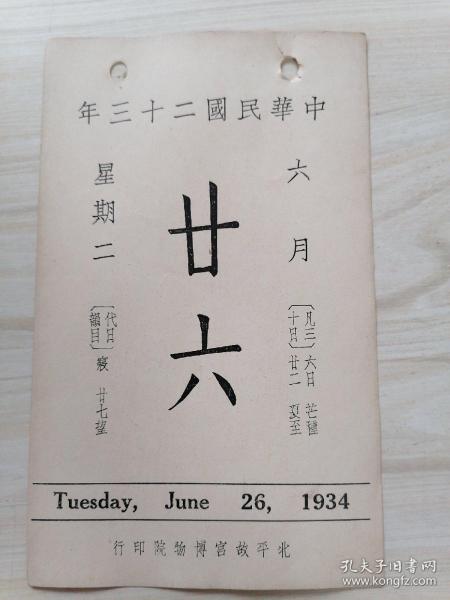 中華民國二十三年
六月
廿六
星期二
〔凡三十日〕六日 芒種 廿二 夏至
〔代日韻目〕寢 廿七望
Tuesday, June 26, 1934
北平故宮博物院印行
孔夫子旧书网